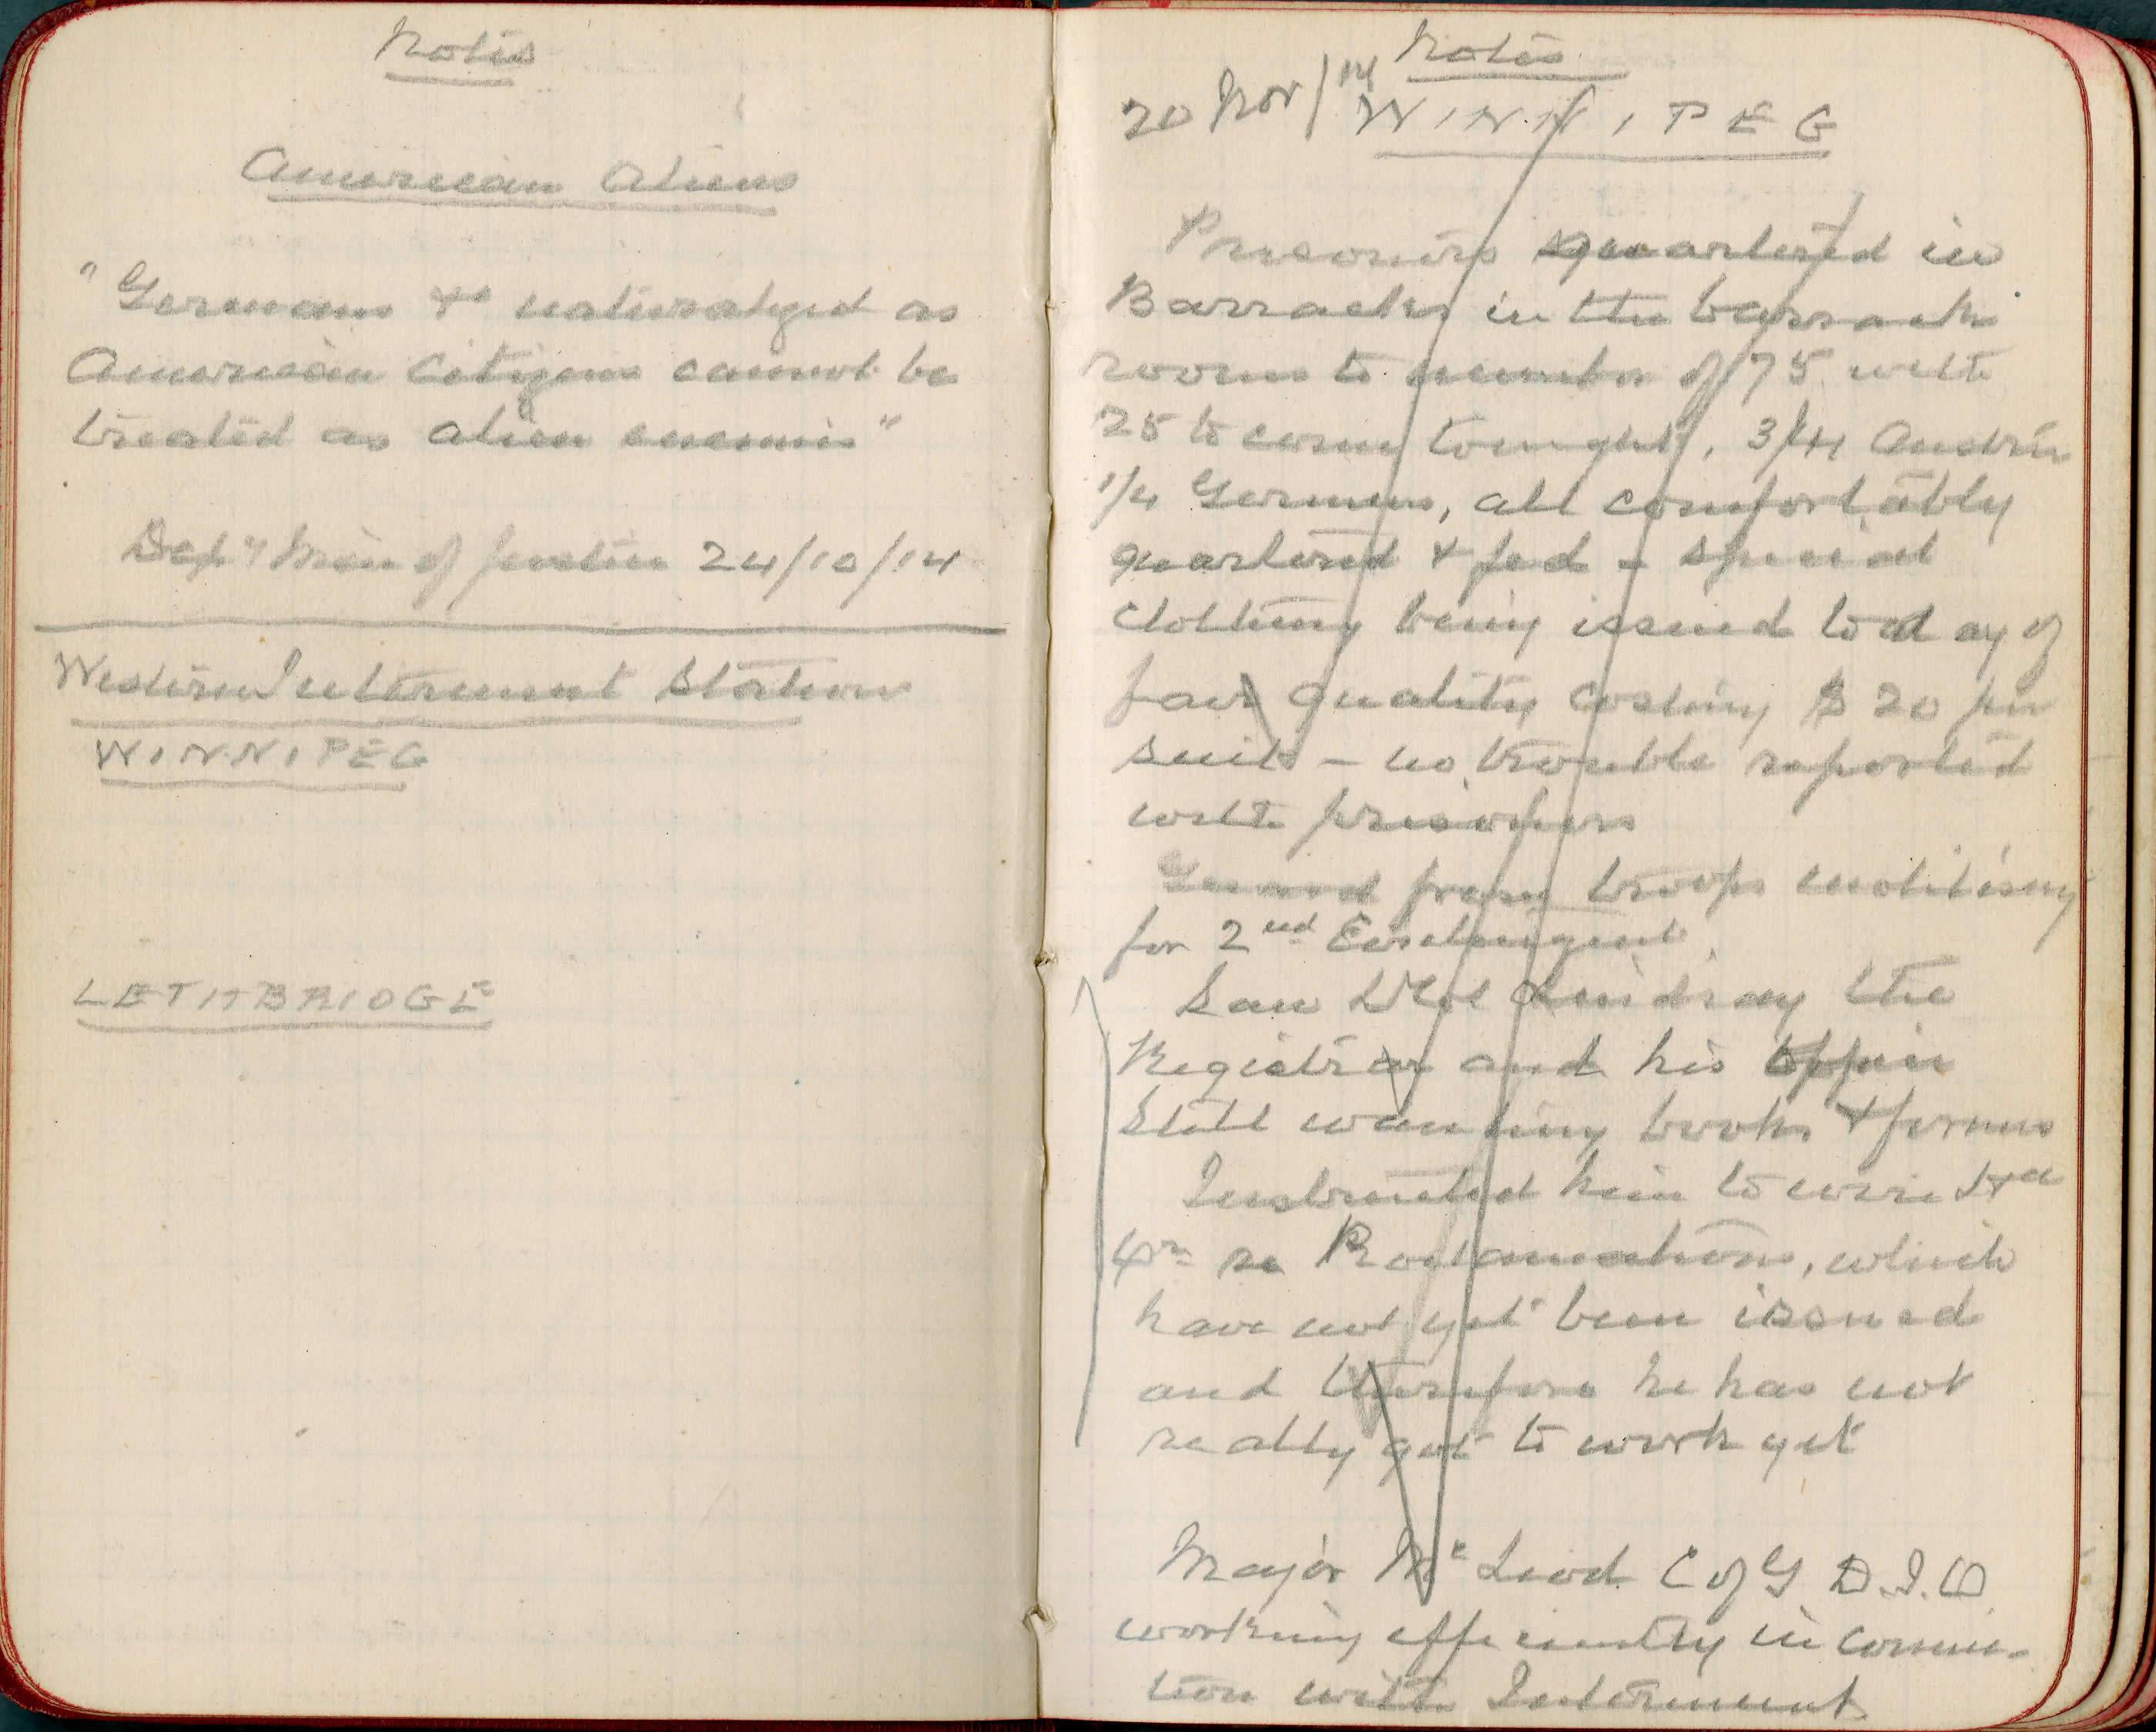 Notes
American Aliens
"Germans &c naturalyzed as
American Citizens cannot be
treated as alien enemies"
Dep'y Min of Justice 24/10/14
Western Internment Station
WINNIPEG
LETHBRIDGE
Notes
20 Nov/14 WINNIPEG
Prisoners quartered in
Barracks in the barrack
rooms to number of 75 with
25 to come tonight, 3/4 Austrian
1/4 Germans, all comfortably
quartered & fed - special
clothing being issued today of
fair quality costing $20 per
suit - no trouble reported
with prisoners
Guard from troops mobilising
for 2nd Contingent.
Saw Lt Col Lindsay the
Registrar and his office
still wanting books & forms
Instructed him to wire Hd
Qrs re Proclamations, which
have not yet been issued
and therefore he has not
really got to work yet
Major McLeod C of G D.I.O
working efficiently in connec-
tion with Internment